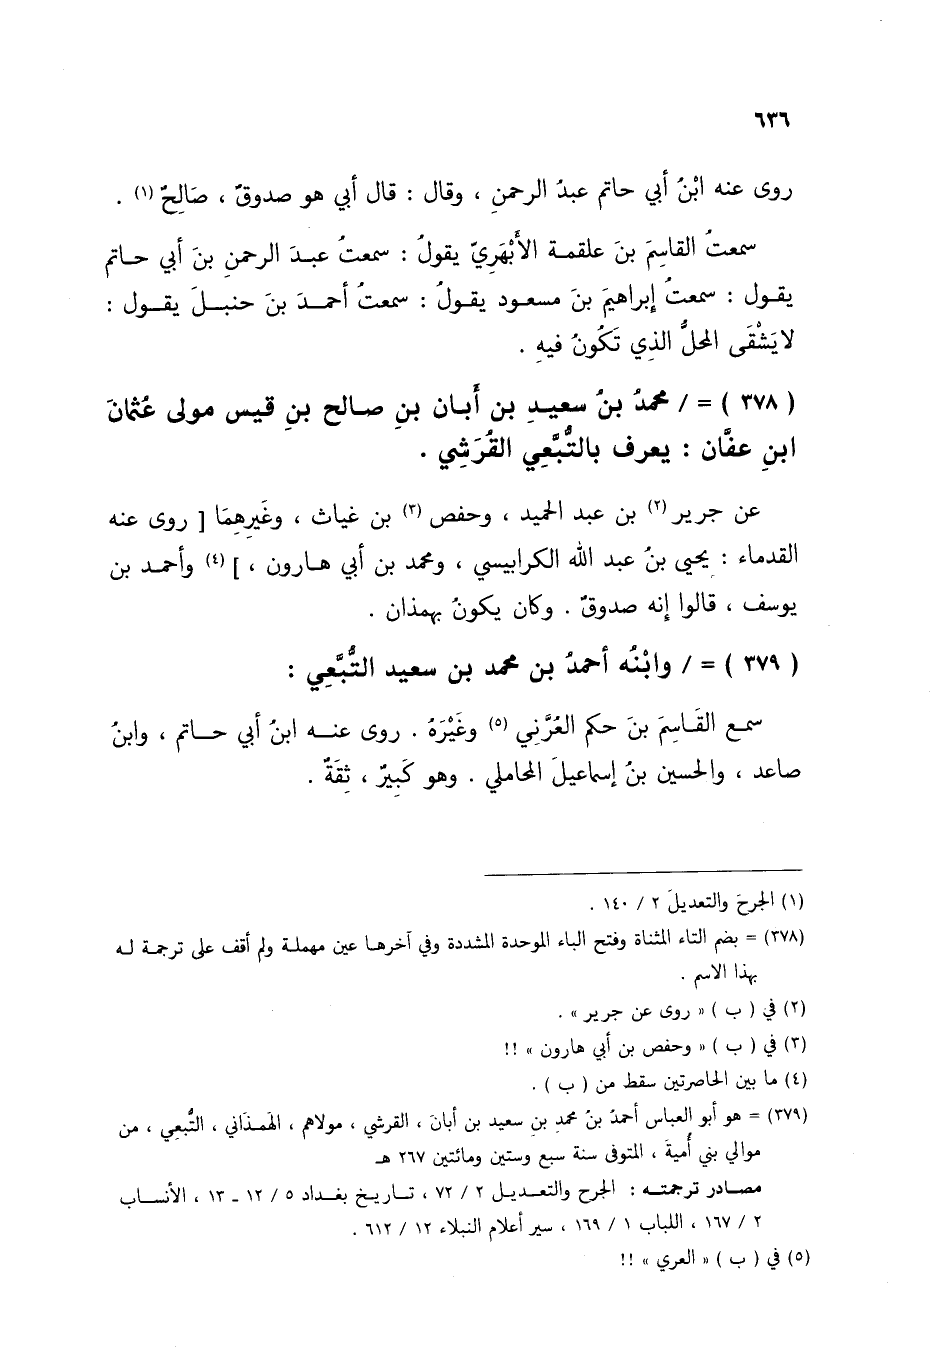 ٦٣٦
روى عنه ابْنُ أبي حاتم عبدُ الرحمنِ ، وقال : قال أبي هو صدوقٌ ، صَالِحٌ (١) .
سمعتُ القاسِمَ بنَ علقمة الأَبْهَرِيّ يقولُ : سمعتُ عبدَ الرحمنِ بنَ أبي حاتم
يقول : سمعتُ إبراهيمَ بنَ مسعود يقولُ : سمعتُ أحمدَ بنَ حنبلَ يقول :
لايَشْقَى المحلُّ الذي تَكُونُ فيهِ .
( ٣٧٨ ) = / محمدُ بنُ سعيدِ بنِ أَبان بنِ صالح بنِ قيس مولى عُثمانَ
ابنِ عفَّان : يعرف بالتُّبَّعِي القُرَشِي .
عن جرير (٢) بن عبد الحميد ، وحفص (٣) بن غياث ، وغَيرِهِمَا [ روى عنه
القدماء : يحيى بنُ عبد الله الكرابيسي ، ومحمد بن أبي هارون ، ] (٤) وأحمد بن
يوسف ، قالوا إنه صدوقٌ . وكان يكونُ بهمذان .
( ٣٧٩ ) = / وابْنُه أحمدُ بن محمد بن سعيد التُّبَّعِي :
سمع القَاسِمَ بنَ حكم العُرَّني (٥) وغَيْرَهُ . روى عنه ابنُ أبي حاتم ، وابنُ
صاعد ، والحسين بنُ إسماعيلَ المحاملي . وهو كَبِيرٌ ، ثِقَةٌ .
(١) الجرحَ والتعديلَ ٢ / ١٤٠ .
(٣٧٨) = بضم التاء المثناة وفتح الباء الموحدة المشددة وفي آخرها عين مهملة ولم أقف على ترجمة له
بهذا الاسم .
(٢) في ( ب ) « روى عن جرير » .
(٣) في ( ب ) « وحفص بن أبي هارون » !!
(٤) ما بين الحاصرتين سقط من ( ب ) .
(٣٧٩) = هو أبو العباس أحمدُ بنُ محمدِ بنِ سعيد بن أبانَ ، القرشي ، مولاهم ، الهَمذاني ، التُّبعي ، من
موالي بني أُميةَ ، المتوفى سنة سبع وستين ومائتين ٢٦٧ هـ
مصادر ترجمته : الجرح والتعديل ٢ / ٧٢ ، تاريخ بغداد ٥ / ١٢ ـ ١٣ ، الأنساب
٢ / ١٦٧ ، اللباب ١ / ١٦٩ ، سير أعلام النبلاء ١٢ / ٦١٢ .
(٥) في ( ب ) « العري » !!